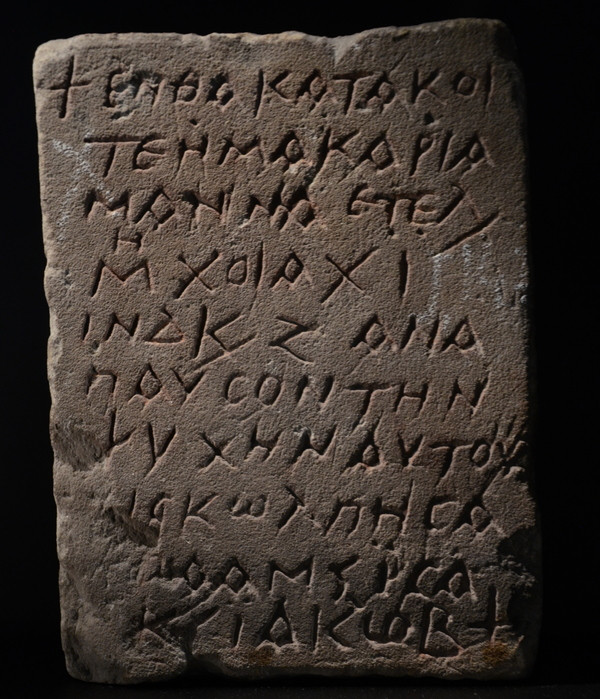 + ΕΝΘΑ ΚΑΤΑΚΟΙ
ΤΕ Η ΜΑΚΑΡΙΑ
ΜΑΝΝΑ ΕΤΕΛ
ΜΗ ΧΟΙΑΧ Ι
ΙΝΔΚ Ζ ΑΝΑ
ΠΑΥCΟΝ ΤΗΝ
ΨΥΧΗΝ ΑΥΤΟΥ
ΚΩΛΠΗC Α
Κ S ΙΑΚΩΒ +